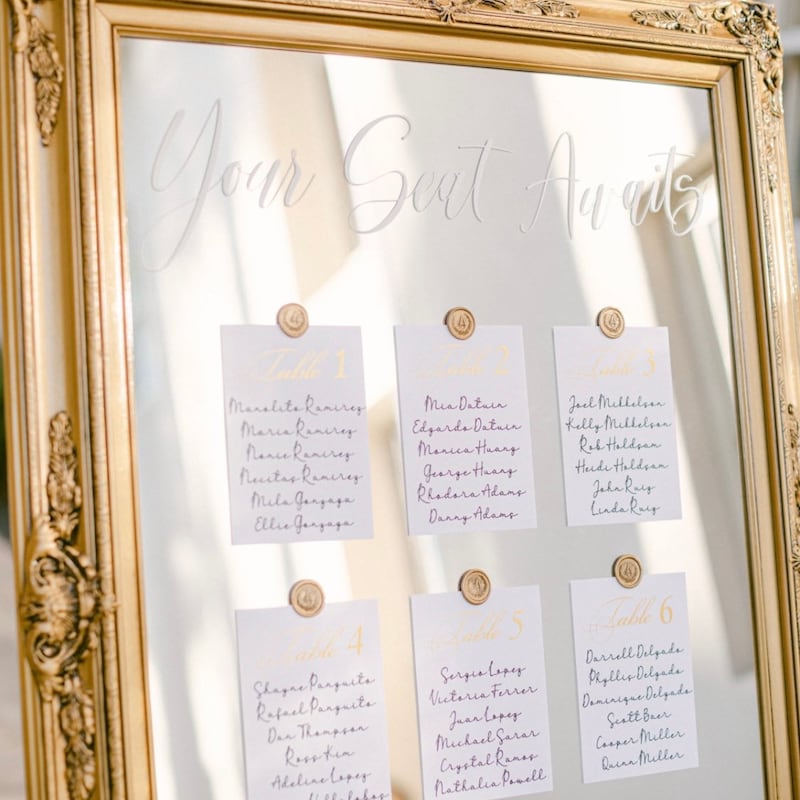 Your Seat Awaits
Table 1
Manolito Ramirez
Maria Ramirez
Nonie Ramirez
Necitas Ramirez
Mila Gonzaga
Ellie Gonzaga
Table 2
Mia Datuin
Edgardo Datuin
Monica Huang
George Huang
Rhodora Adams
Danny Adams
Table 3
Joel Mikkelson
Kelly Mikkelson
Rob Holdsam
Heidi Holdsam
John Ruiz
Linda Ruiz
Table 4
Shayne Panguito
Rafael Panguito
Dan Thompson
Ross Kim
Adeline Lopez
Table 5
Sergio Lopez
Victoria Ferrer
Juan Lopez
Michael Sarar
Crystal Ramos
Nathalia Powell
Table 6
Darrell Delgado
Phyllis Delgado
Dominique Delgado
Scott Baer
Cooper Miller
Quinn Miller